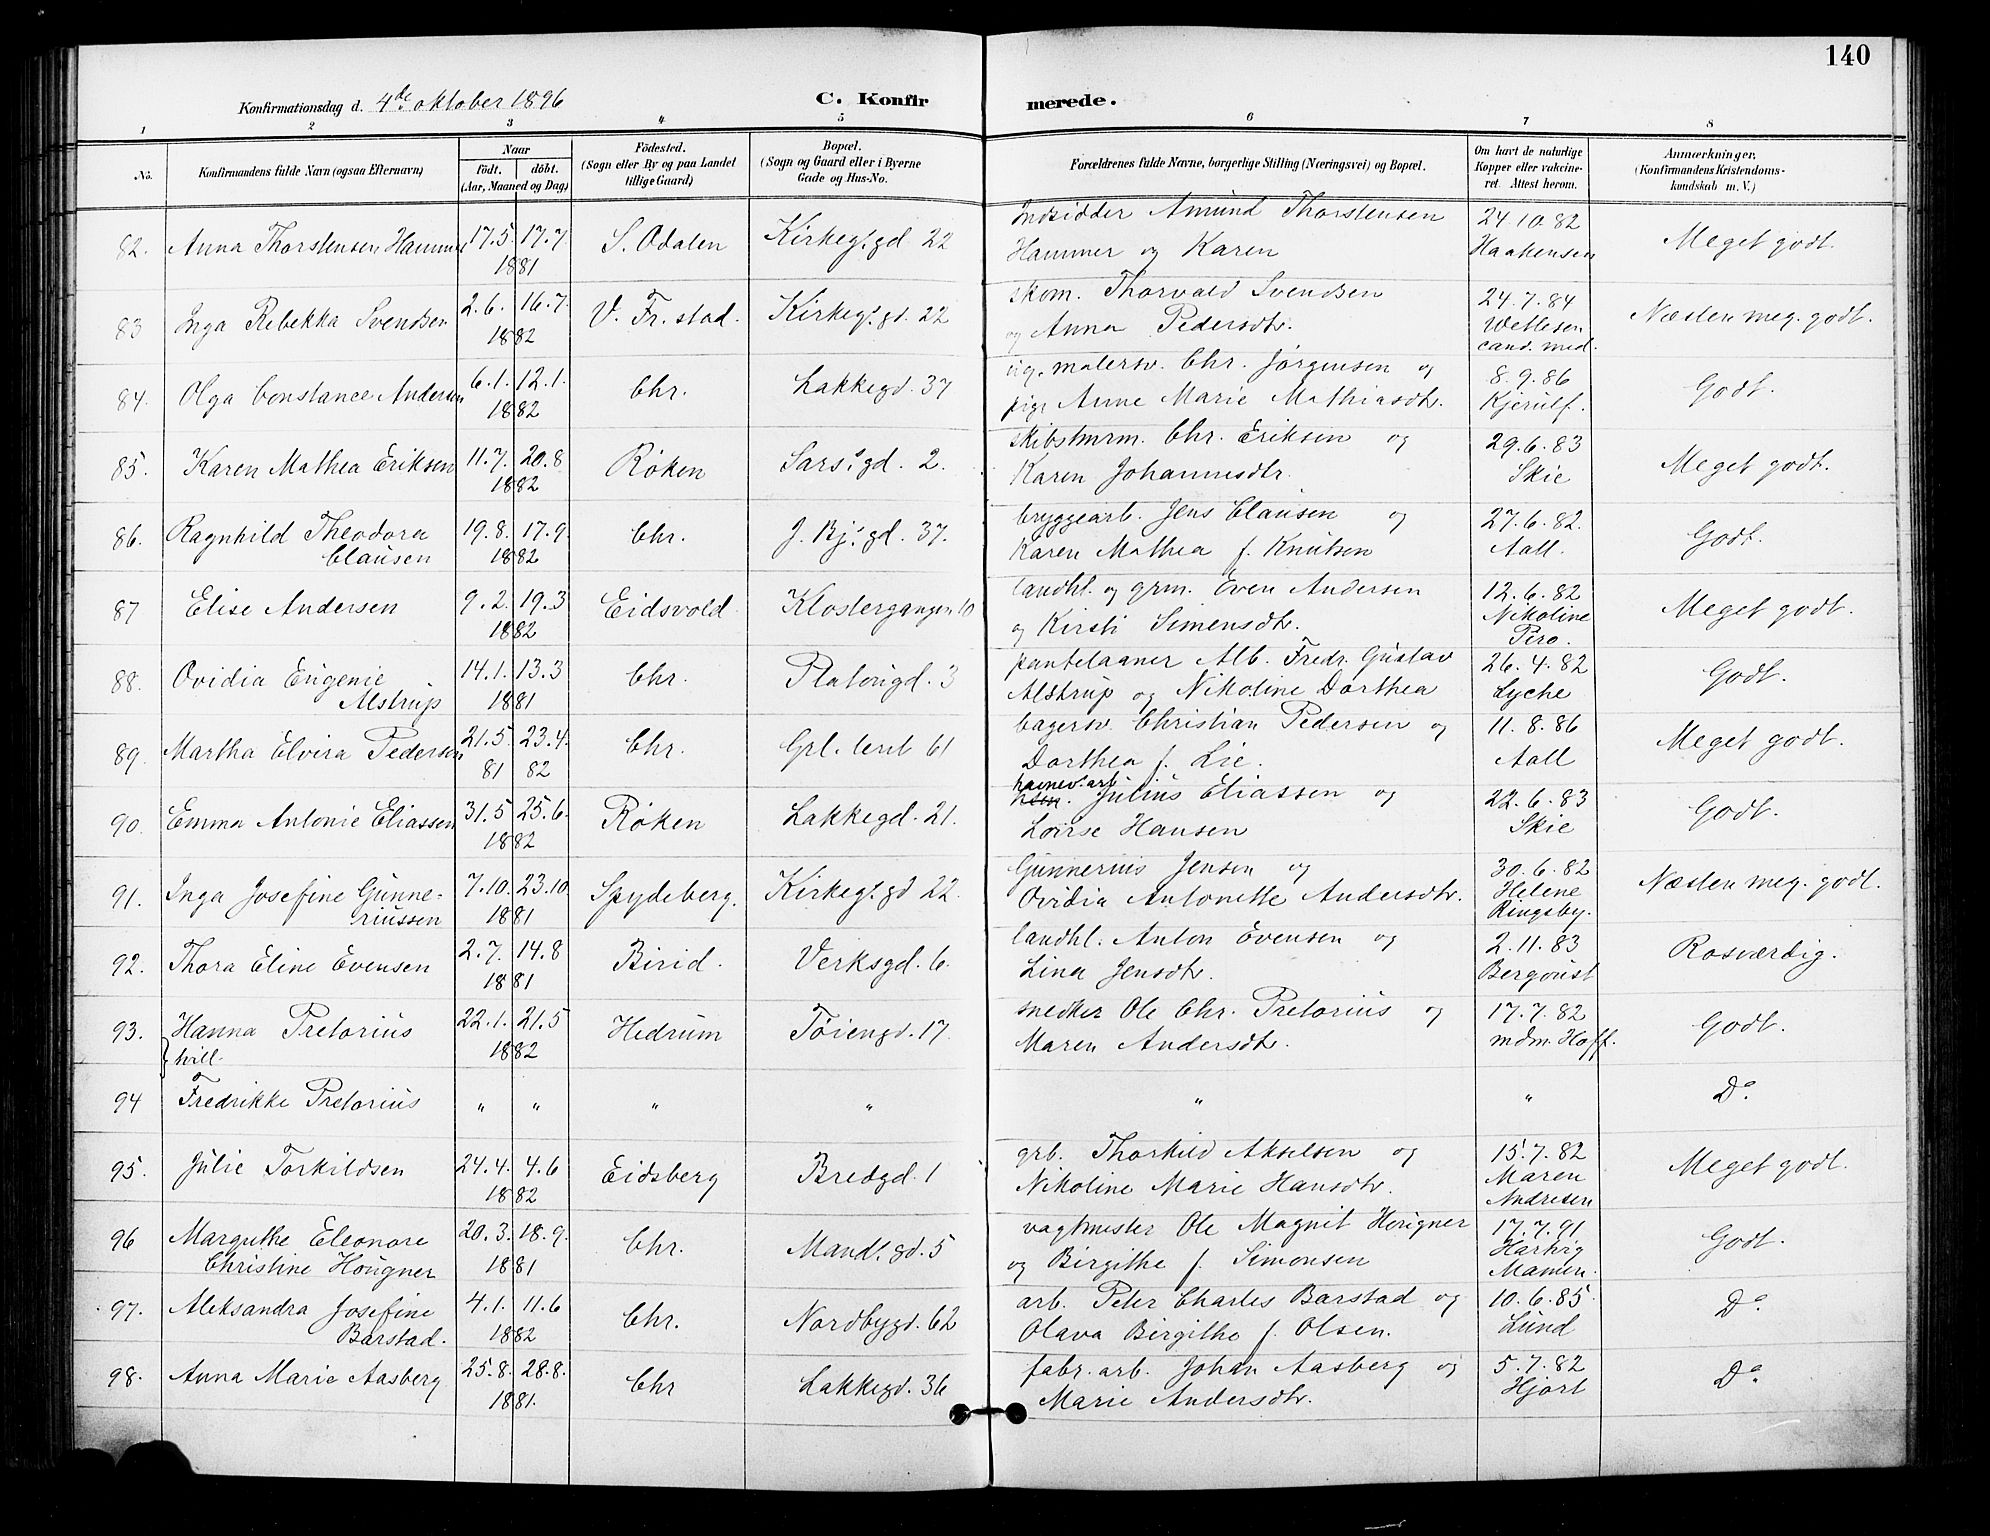 140
Konfirmationsdag d. 4de oktober 1896 C. Konfirmerede.
1 2 3 4 5 6 7 8
No. Konfirmandens fulde Navn (ogsaa Efternavn) Naar födt. döbt. (Aar, Maaned og Dag) Födested. (Sogn eller By og paa Landet tillige Gaard) Bopæl. (Sogn og Gaard eller i Byerne Gade og Hus-No. Forældrenes fulde Navne, borgerlige Stilling (Næringsvei) og Bopæl. Om havt de naturlige Kopper eller vakcineret. Attest herom. Anmærkninger. (Konfirmandens Kristendomskundskab m. V.)
82. Anna Thorstensen Hammer 17.5. 17.7. 1881 S. Odalen Kirkegt.gd 22 Indsidder Amund Thorstensen Hammer og Karen 24.10.82 Haakensen Meget godt.
83 Inga Rebekka Svendsen 2.6. 16.7. 1882 V. Fr.stad. Kirkegt.gd. 22 skom. Thorvald Svendsen og Anna Pedersdtr. 24.7.84 Wetlesen cand. med. Næsten meg. godt.
84. Olga Constance Andersen 6.1. 12.1. 1882 Chr. Lakkegd. 37 ug. malersv. Chr. Jørgensen og pige Anne Marie Mathiasdtr. 8.9.86 Kjerulf. Godt.
85. Karen Mathea Eriksen 11.7. 20.8 1882 Røken Sarsgd. 2. skibstmrm. Chr. Eriksen og Karen Johannesdtr. 29.6.83 Skie Meget godt.
86. Ragnhild Theodora Clausen 19.8. 17.9. 1882 Chr. J. Bj.s gd. 37. bryggearb. Jens Clausen og Karen Mathea f. Knutsen 27.6.82. Aall. Godt.
87 Elise Andersen 9.2. 19.3 1882 Eidsvold Klostergangen 10 landhl. og grm. Even Andersen og Kirsti Simensdtr. 12.6.82 Nikoline Pero. Meget godt.
88. Ovidia Eugenie Alstrup 14.1. 13.3 1881 Chr. Platougd. 3 pantelaaner Alb. Fredr. Gustav Alstrup og Nikoline Dorthea 26.4.82 Lyche Godt.
89. Martha Elvira Pedersen 21.5. 81 23.4. 82 Chr. Grl. Leret 61 bagersv. Christian Pedersen og Dorthea f. Lie. 11.8.86 Aall Meget godt.
90. Emma Antonie Eliassen 31.5 25.6. 1882 Røken Lakkegd. 21. havnev.arb. Julius Eliassen og Lovise Hansen 22.6.83 Skie Godt.
91. Inga Josefine Gunneriussen 7.10. 23.10 1881 Spydeberg. Kirkegt.gd 22. Gunnerius Jensen og Ovidia Antonette Andersdtr. 30.6.82 Helene Ringsby. Næsten meg. godt.
92. Thora Eline Evensen 2.7. 14.8 1881 Birid. Verksgd. 6. landhl. Anton Evensen og Lina Jensdtr. 2.11.83 Bergquist Rosværdig.
93. Hanna Pretorius 22.1. 21.5 1882 Hedrum Töiengd. 17. snedker Ole Chr. Pretorius og Maren Andersdtr. 17.7.82 mdm. Hoff. Godt.
tvill.
94 Fredrikke Pretorius " " " " " " Do
95. Julie Torkildsen 24.4. 4.6 1882 Eidsberg Bredgd. 1 grb. Thorkild Akselsen og Nikoline Marie Hansdtr. 15.7.82 Maren Andresen Meget godt.
96 Margrethe Eleonore Christine Hougner 20.3. 18.9. 1881 Chr. Mandt. gd. 5 vagtmester Ole Magnit Hougner og Birgithe f. Simonsen 17.7.91 Hartvig Mamen. Godt.
97. Aleksandra Josefine Barstad. 4.1. 11.6 1882 Chr. Nordbygd. 62 arb. Peter Charles Barstad og Olava Birgithe f. Olsen. 10.6.85. Lund Do
98. Anna Marie Aasberg 25.8. 28.8. 1881. Chr Lakkegd. 36 fabr. arb. Johan Aasberg og Marie Andersdtr. 5.7.82 Hjort Do